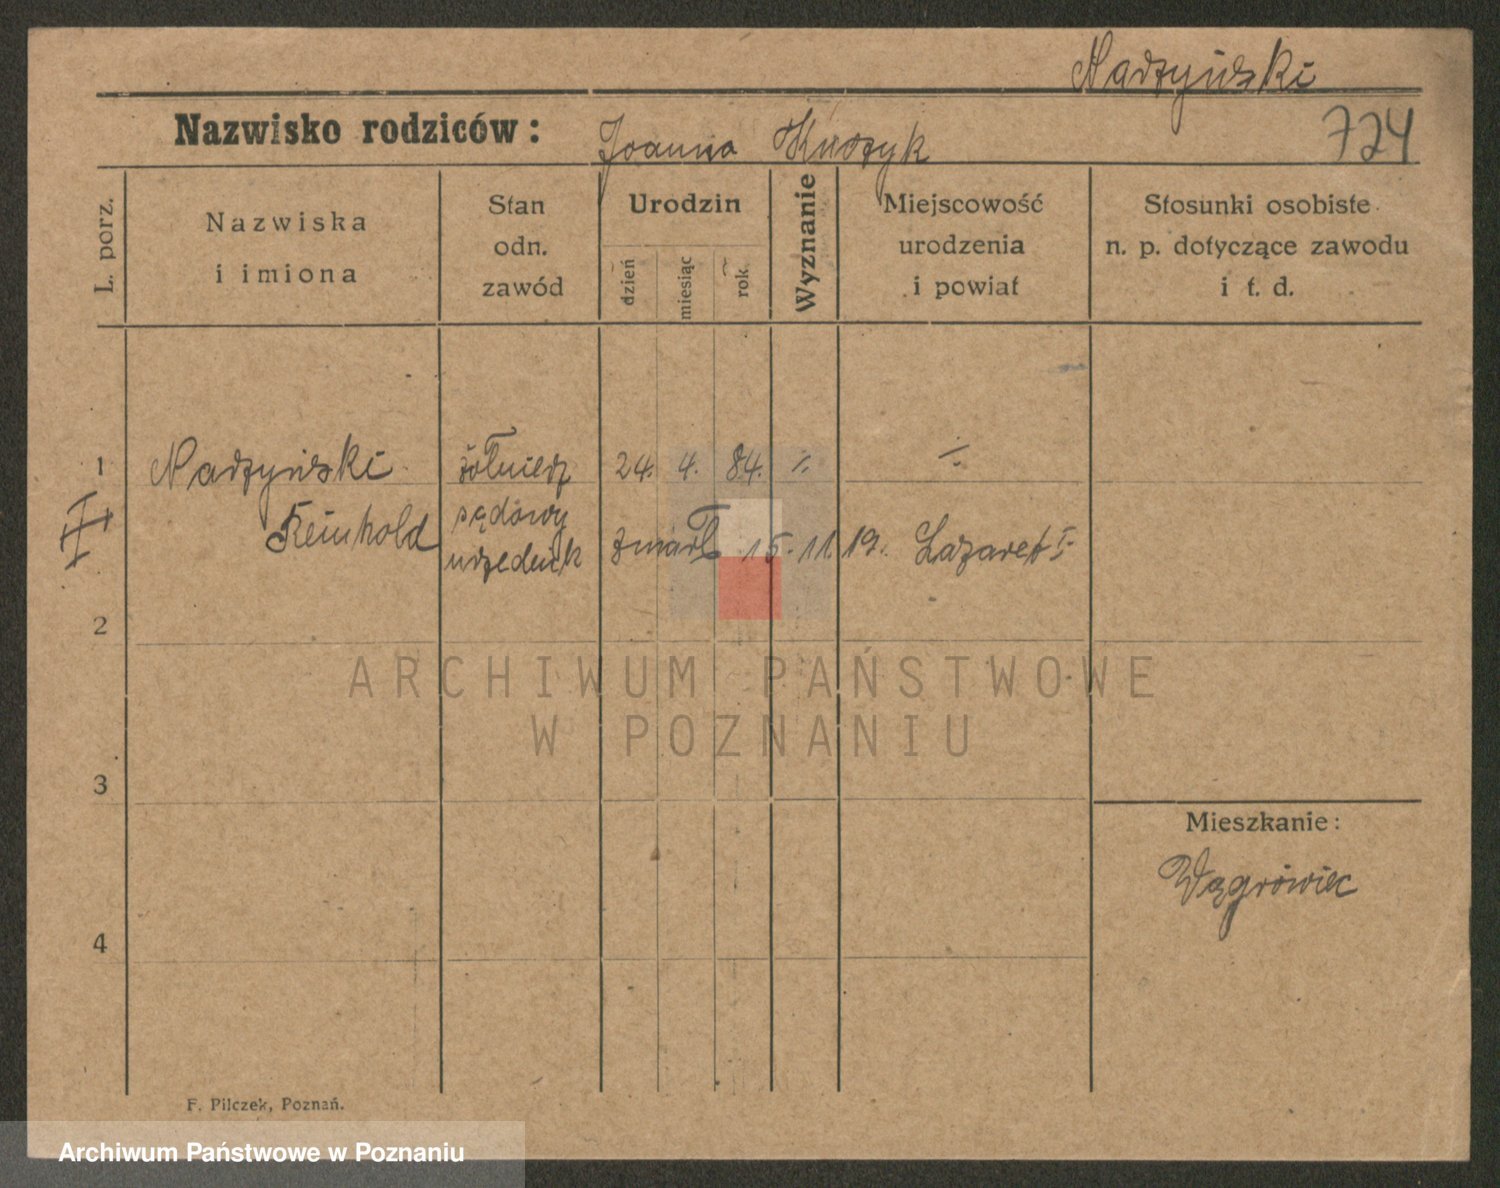 Nadzyński
Nazwisko rodziców: Joanna
724
L. porz.
Nazwiska
i imiona
Stan
odn.
zawód
Urodzin
dzień
miesiąc
rok.
Wyznanie
Miejscowość
urodzenia
i powiat
Stosunki osobiste
n. p. dotyczące zawodu
i t. d.
1 Nadzyński żołnierz 24. 4. 84. ·/· ·/·
Reinhold sądowy
urzędnik zmarł 15.11.19. Lazaret I
2
3
4
Mieszkanie:
Wągrówiec
F. Pilczek, Poznań.
ARCHIWUM PAŃSTWOWE
W POZNANIU
Archiwum Państwowe w Poznaniu